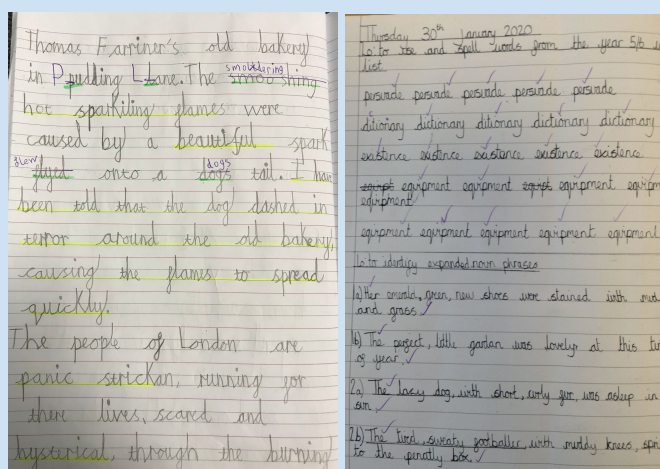 Thomas Farriner's old bakery
in Ppudding LLane. The smouldering
hot sparkiling flames were
caused by a beautiful spark
flew onto a dogs tail. I have
been told that the dog dashed in
terror around the old bakery,
causing the flames to spread
quickly.
The people of London are
panic strickan, running for
there lives, scared and
hysterical, through the burning
Thursday 30th January 2020
Lo: to use and spell words from the year 5/6
list
persuade persuade persuade persuade persuade
ditionary dictionary ditionary dictionary dictionary
existence existence existence existence existence
equipment equipment equipment
equipment
equipment equipment equipment equipment equipment
Lo: to identify expanded noun phrases
1a) Her emerald, green, new shoes were stained with mud
and grass
1b) The perfect, little garden was lovely at this
of year.
2a) The lazy dog, with short, curly fur, was asleep in
sun.
2b) The tired, sweaty footballer, with muddy knees,
to the penalty box.